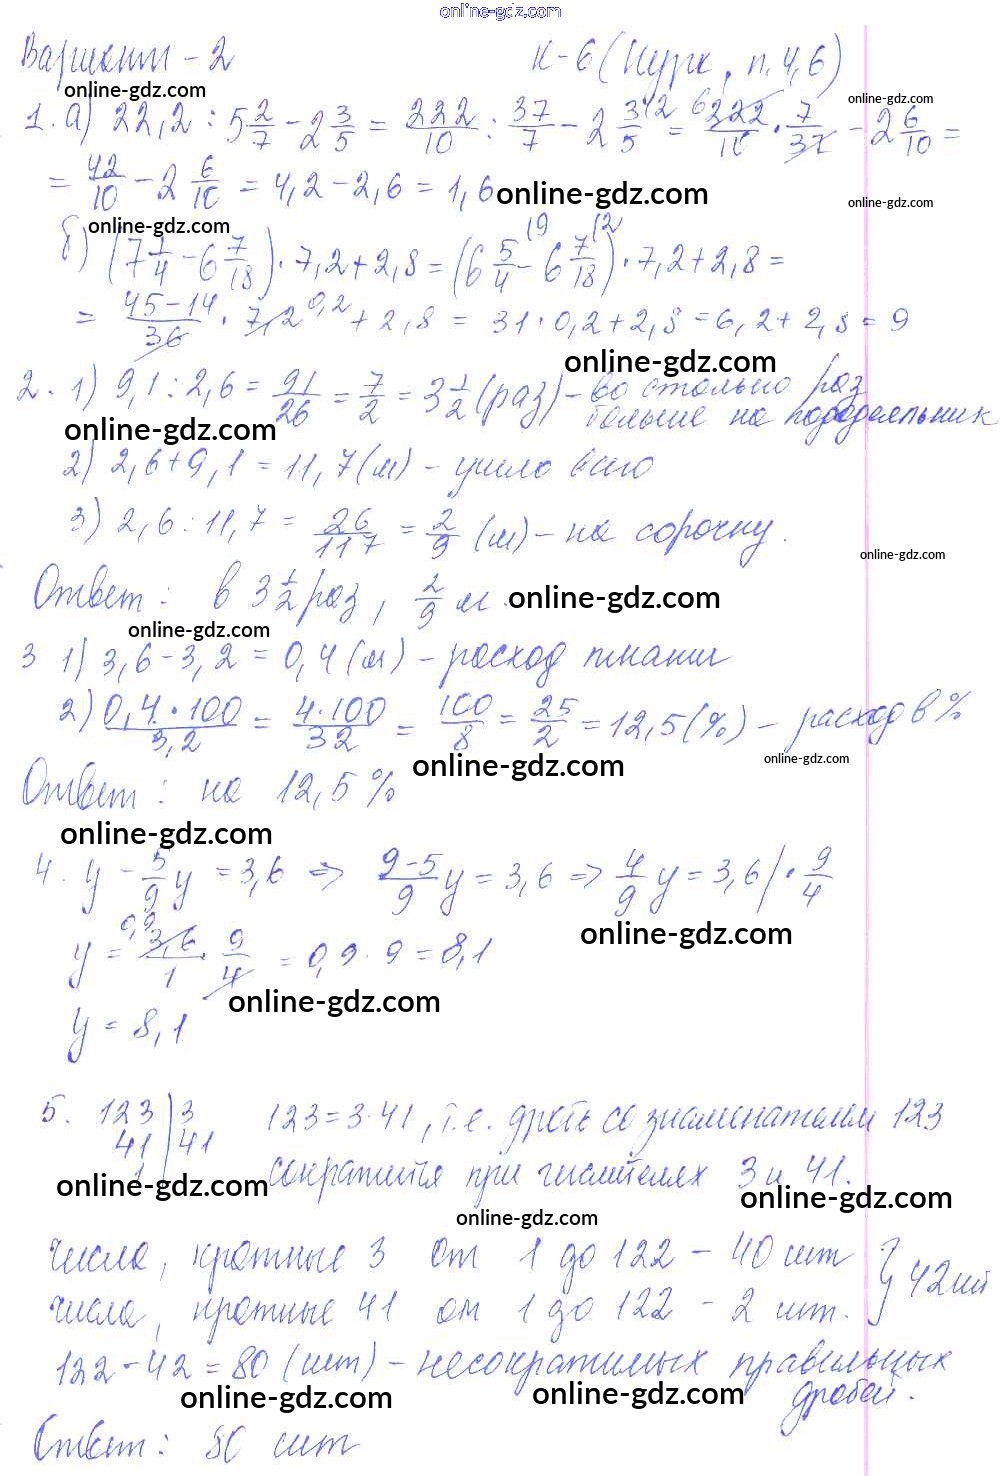 online-gdz.com
Вариант - 2 К-6 (Нурк, п. 4,6)
online-gdz.com online-gdz.com
1. а) 22,2 : 5 2/7 - 2 3/5 = 222/10 : 37/7 - 2 3/5 = 222/10 · 7/37 - 2 6/10 =
= 42/10 - 2 6/10 = 4,2 - 2,6 = 1,6
online-gdz.com online-gdz.com
online-gdz.com
б) (7 1/4 - 6 7/18) · 7,2 + 2,8 = (6 5/4 - 6 7/18) · 7,2 + 2,8 =
= 45-14/36 · 7,2 0,2 + 2,8 = 31 · 0,2 + 2,8 = 6,2 + 2,8 = 9
online-gdz.com
2. 1) 9,1 : 2,6 = 91/26 = 7/2 = 3 1/2 (раз) - во столько раз
больше на пододеяльник
online-gdz.com
2) 2,6 + 9,1 = 11,7 (м) - ушло всего
3) 2,6 : 11,7 = 26/117 = 2/9 (м) - на сорочку.
online-gdz.com
Ответ: в 3 1/2 раз, 2/9 м.
online-gdz.com
online-gdz.com
3 1) 3,6 - 3,2 = 0,4 (м) - расход ткани
2) 0,4 · 100/3,2 = 4 · 100/32 = 100/8 = 25/2 = 12,5 (%) - расход в %
online-gdz.com online-gdz.com
Ответ: на 12,5 %
online-gdz.com
4. y - 5/9 y = 3,6 => 9-5/9 y = 3,6 => 4/9 y = 3,6 | · 9/4
online-gdz.com
y = 3,6/1 · 9/4 = 0,9 · 9 = 8,1
online-gdz.com
y = 8,1
5. 123 | 3 123 = 3 · 41, т.е. дробь со знаменателем 123
41 | 41 сократится при числителях 3 и 41.
1
online-gdz.com online-gdz.com
online-gdz.com
числа, кратные 3 от 1 до 122 - 40 шт } 42 шт
числа, кратные 41 от 1 до 122 - 2 шт.
122 - 42 = 80 (шт) - несократимых правильных
дробей.
online-gdz.com online-gdz.com
Ответ: 80 шт